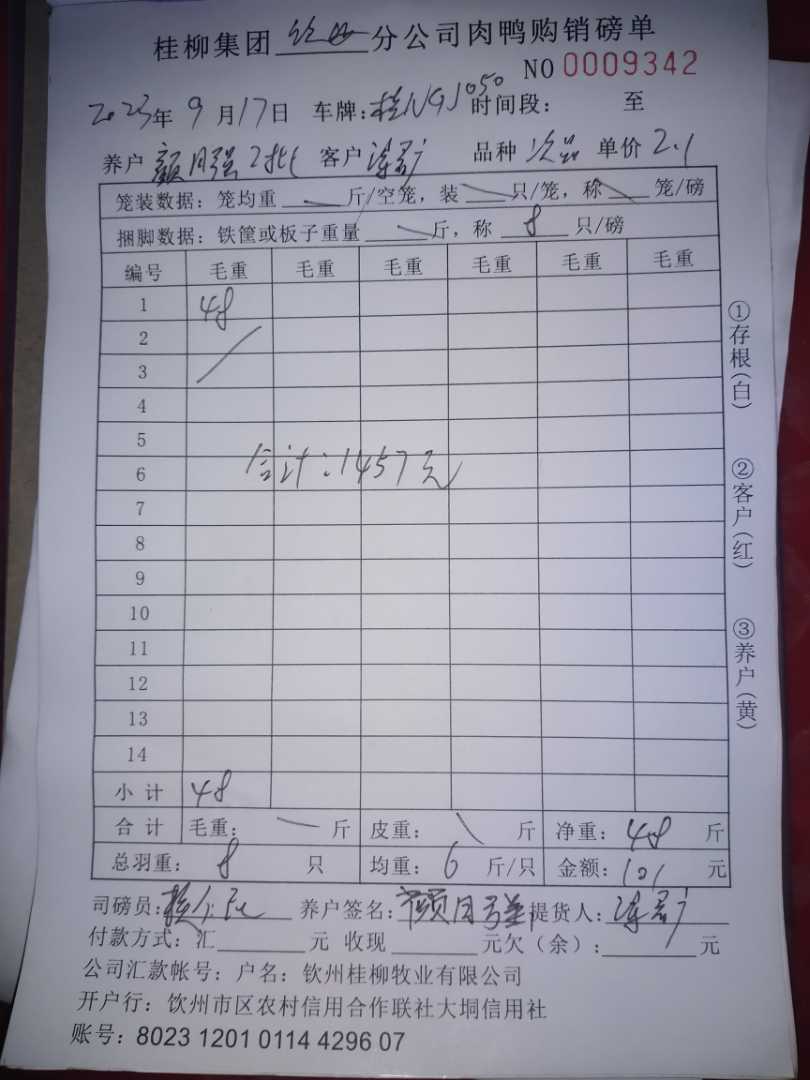 桂柳集团 分公司肉鸭购销磅单
NO 0009342
2023年 9月17日 车牌:桂NGJ050 时间段: 至
养户 颜月强2批 客户 品种 次品 单价 2.1
笼装数据:笼均重 斤/空笼,装 只/笼,称 笼/磅
捆脚数据:铁筐或板子重量 斤,称 8 只/磅
编号 毛重 毛重 毛重 毛重 毛重 毛重
1 48
2
3
4
5
6 合计:1457元
7
8
9
10
11
12
13
14
小计 48
合计 毛重: 斤 皮重: 斤 净重: 48 斤
总羽重: 8 只 均重: 6 斤/只 金额: 101 元
司磅员: 养户签名: 颜月强 提货人:
付款方式:汇 元 收现 元欠(余): 元
公司汇款帐号:户名:钦州桂柳牧业有限公司
开户行:钦州市区农村信用合作联社大垌信用社
账号:8023 1201 0114 4296 07
①存根(白)
②客户(红)
③养户(黄)